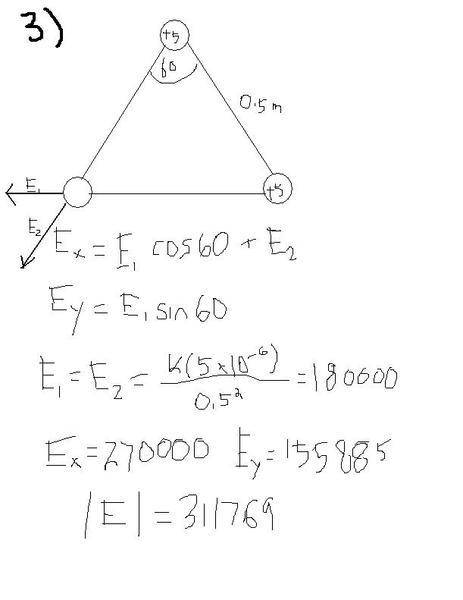 3)
+5
60
0.5m
+5
E₁
E₂
Eₓ = E₁ cos60 + E₂
Ey = E₁ sin60
E₁ = E₂ = K(5×10⁻⁶) / 0.5² = 180000
Eₓ = 270000 Ey = 155885
|E| = 311769